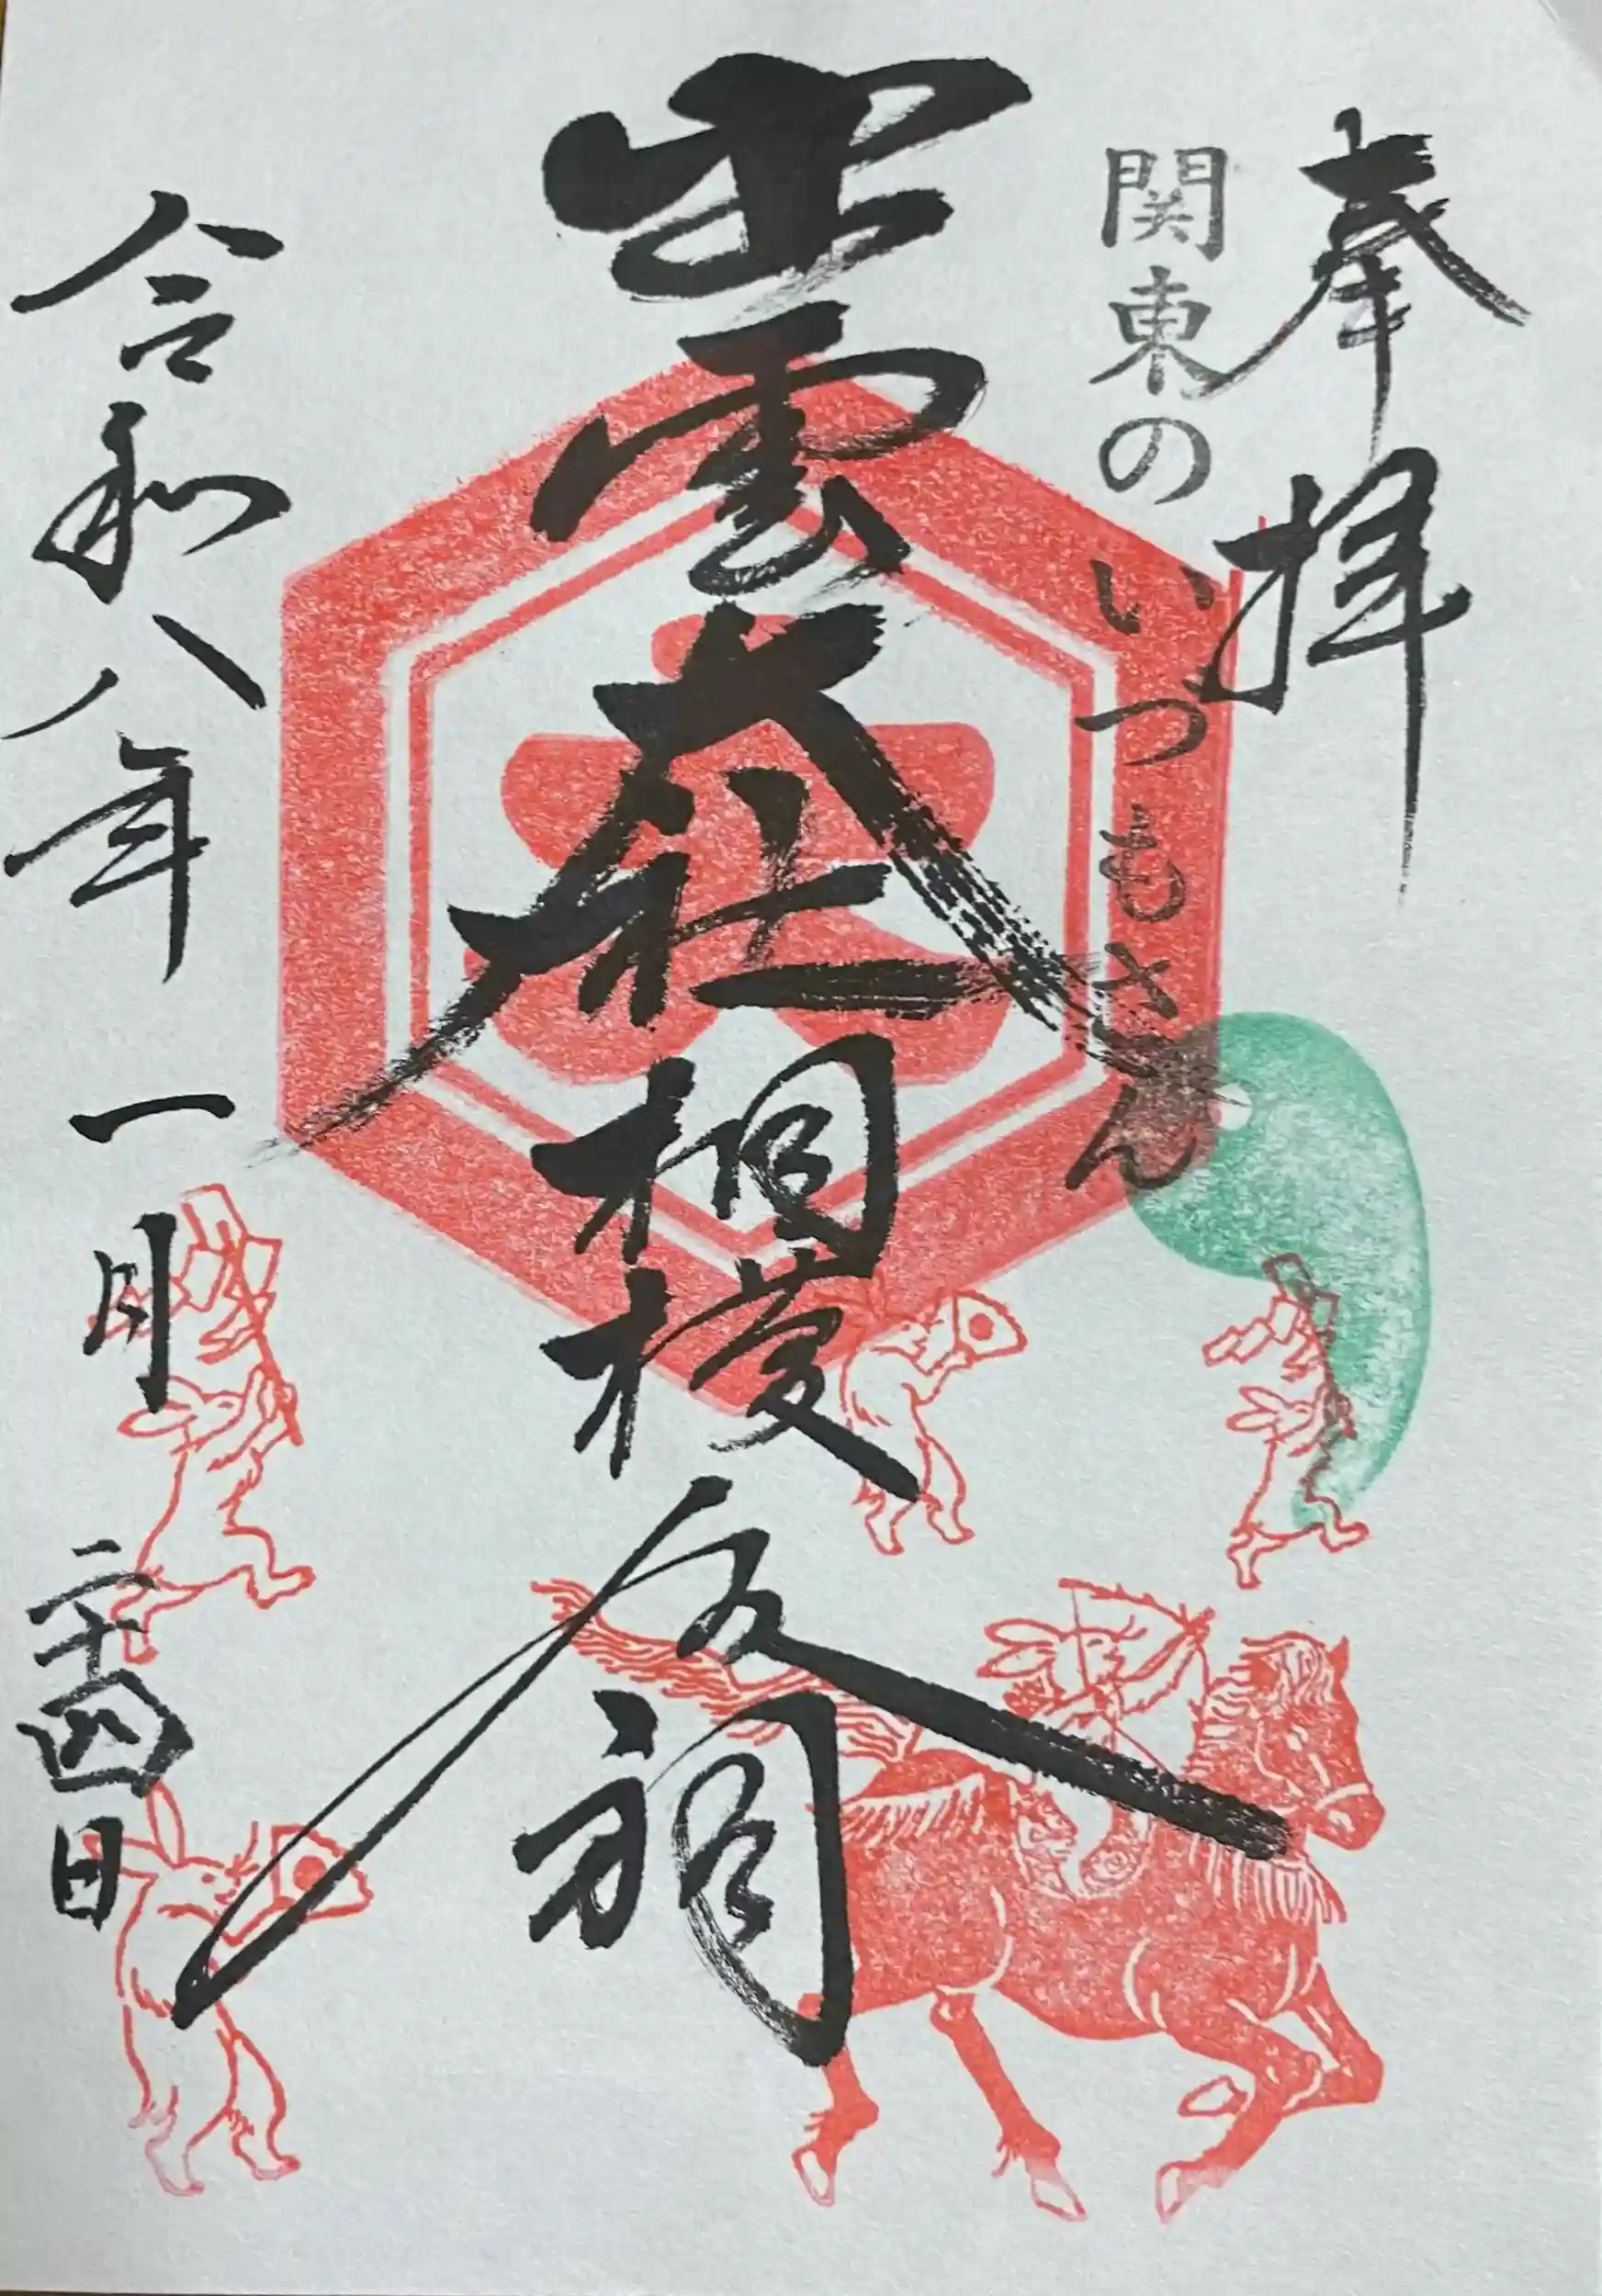 奉拝
関東のいづもさん
出雲大社相模分祠
令和八年一月二十四日